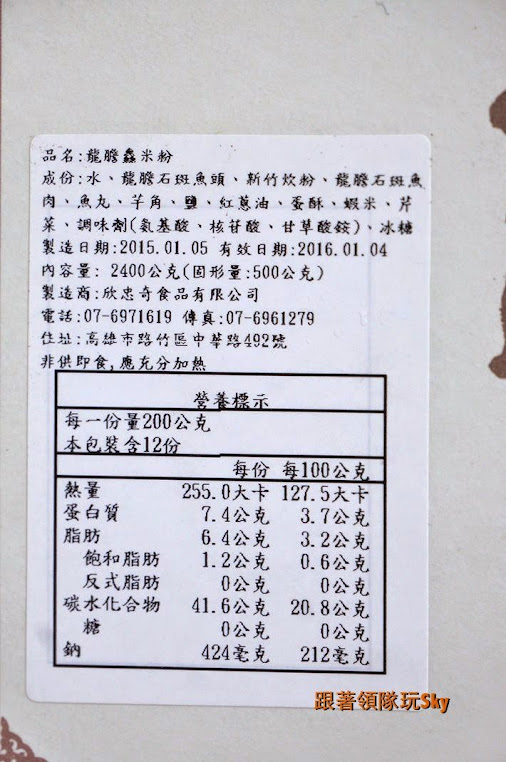 品名:龍膽鱻米粉
成份:水、龍膽石斑魚頭、新竹炊粉、龍膽石斑魚
肉、魚丸、芋角、鹽、紅蔥油、蛋酥、蝦米、芹
菜、調味劑(氨基酸、核苷酸、甘草酸銨)、冰糖
製造日期:2015.01.05 有效日期:2016.01.04
內容量: 2400公克(固形量:500公克)
製造商:欣忠奇食品有限公司
電話:07-6971619 傳真:07-6961279
住址:高雄市路竹區中華路492號
非供即食,應充分加熱
營養標示
每一份量200公克
本包裝含12份
每份 每100公克
熱量 255.0大卡 127.5大卡
蛋白質 7.4公克 3.7公克
脂肪 6.4公克 3.2公克
飽和脂肪 1.2公克 0.6公克
反式脂肪 0公克 0公克
碳水化合物 41.6公克 20.8公克
糖 0公克 0公克
鈉 424毫克 212毫克
跟著領隊玩Sky